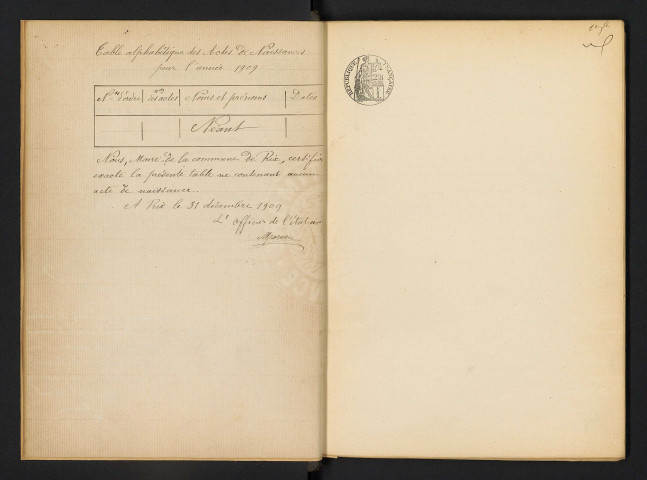 Table alphabétique des Actes de Naissances
pour l'année 1909
Nos d'ordre des actes Noms et prénoms Dates
Néant
Nous, Maire de la commune de Rix, certifie
exacte la présente table ne contenant aucun
acte de naissance.
A Rix le 31 décembre 1909
L' officier de l'état
RÉPUBLIQUE FRANÇAISE